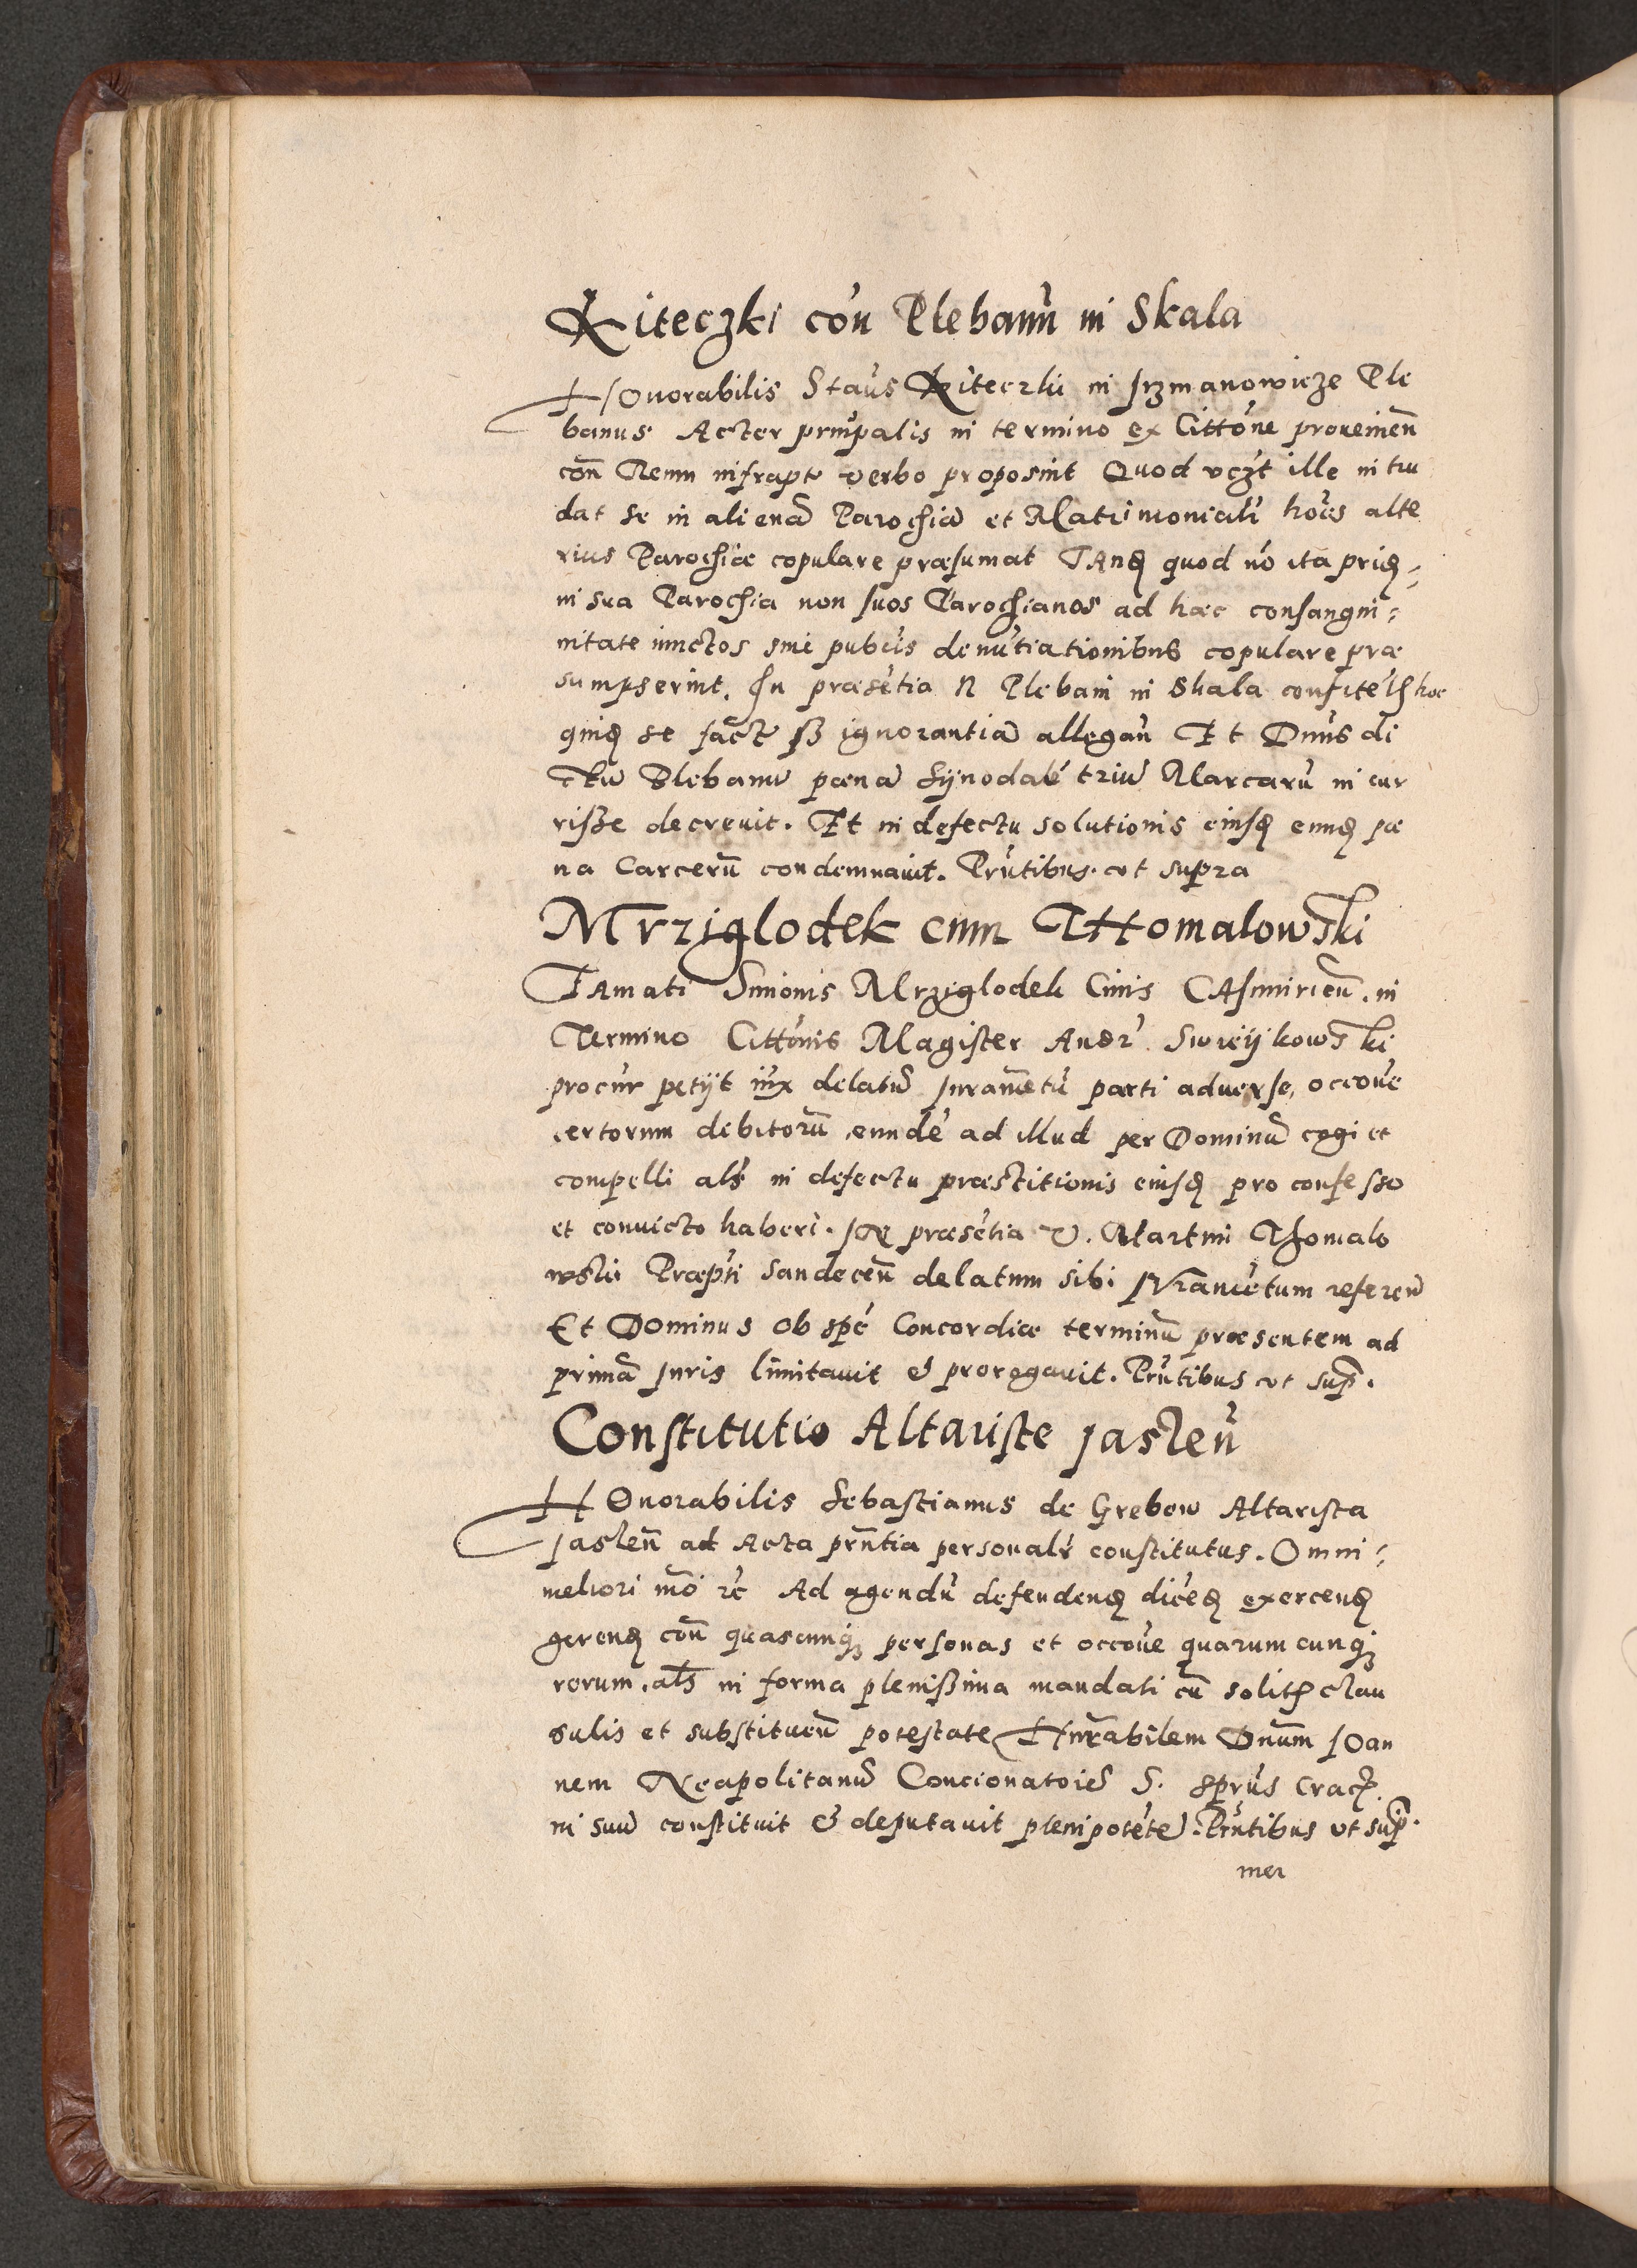 Kiteczki cōn Plebanū in Skala
HOnorabilis Staūs Kiteczki in Sizmanowicze Ple
banus Actor prnīpalis in termino ex Cittōne proueinēn
cōn Reum infrapt verbo proposuit Quod vcz̄t ille intru
dat se in alienā Parochiā et Matrimonialr̄ hōies alte
rius Parochiæ copulare præsumat TAnq̄ quod nō ita prid̄ ⸗
in sua Parochia non suos Parochianos ad hæc consangui⸗
nitate iunctos sine pubcis denūtiationibus copulare præ
sumpserint. In præsētia N Plebani in Skala confitēt̄ hoc
quid̄ se fact̄ sz ignorantiā allegan̄ Et Dnūs di
ctū Plebanū pœnā Synodalē triū Marcarū incur
risse decreuit. Et in defectu solutionis eiusd̄ eund̄ pœ
na Carcerū condemnauit. Prn̄tibus vt supra
Mrziglodek cum THomalowski
IAmati Simonis Mrziglodek Ciuis CAsimirien̄. in
Termino Cittōnis Magister Andr̄ Swieijkowski
procur̄ petijt iūx delatū Iuramētū parti aduerse, occōne
certorum debitorū, eundē ad illud per Dominū cogi et
compelli als̄ in defectu præstitionis eiusd̄ pro confesso
et conuicto haberi. In præsētia V. Martini Thomalo
wski Præp̄ti Sandecen̄ delatum sibi IVramētum referen̄
Et Dominus ob spē Concordiæ terminū præsentem ad
primā Iuris limitauit & prorogauit. Prn̄tibus vt sup̄.
Constitutio Altariste Jaslen̄
HOnorabilis Sebastianus de Grebow Altarista
Jaslen̄ ad Acta prn̄tia personalr̄ constitutus. Omni⸗
meliori mō rc̄ Ad agendū defendend̄ dicēd̄ exercend̄
gerend̄ cōn quascunq̨ personas et occōne quarumcunq̨
rerum, als̄ in forma plenissima mandati cū solit̄ clau
sulis et substituen̄ potestate Hn̄rabilem Dnūm IOan
nem Neapolitanū Concionatorē S. Sprūs Crac̄.
in suū constituit & deputauit plenipotētē. Prn̄tibus vt sup̄.
mei